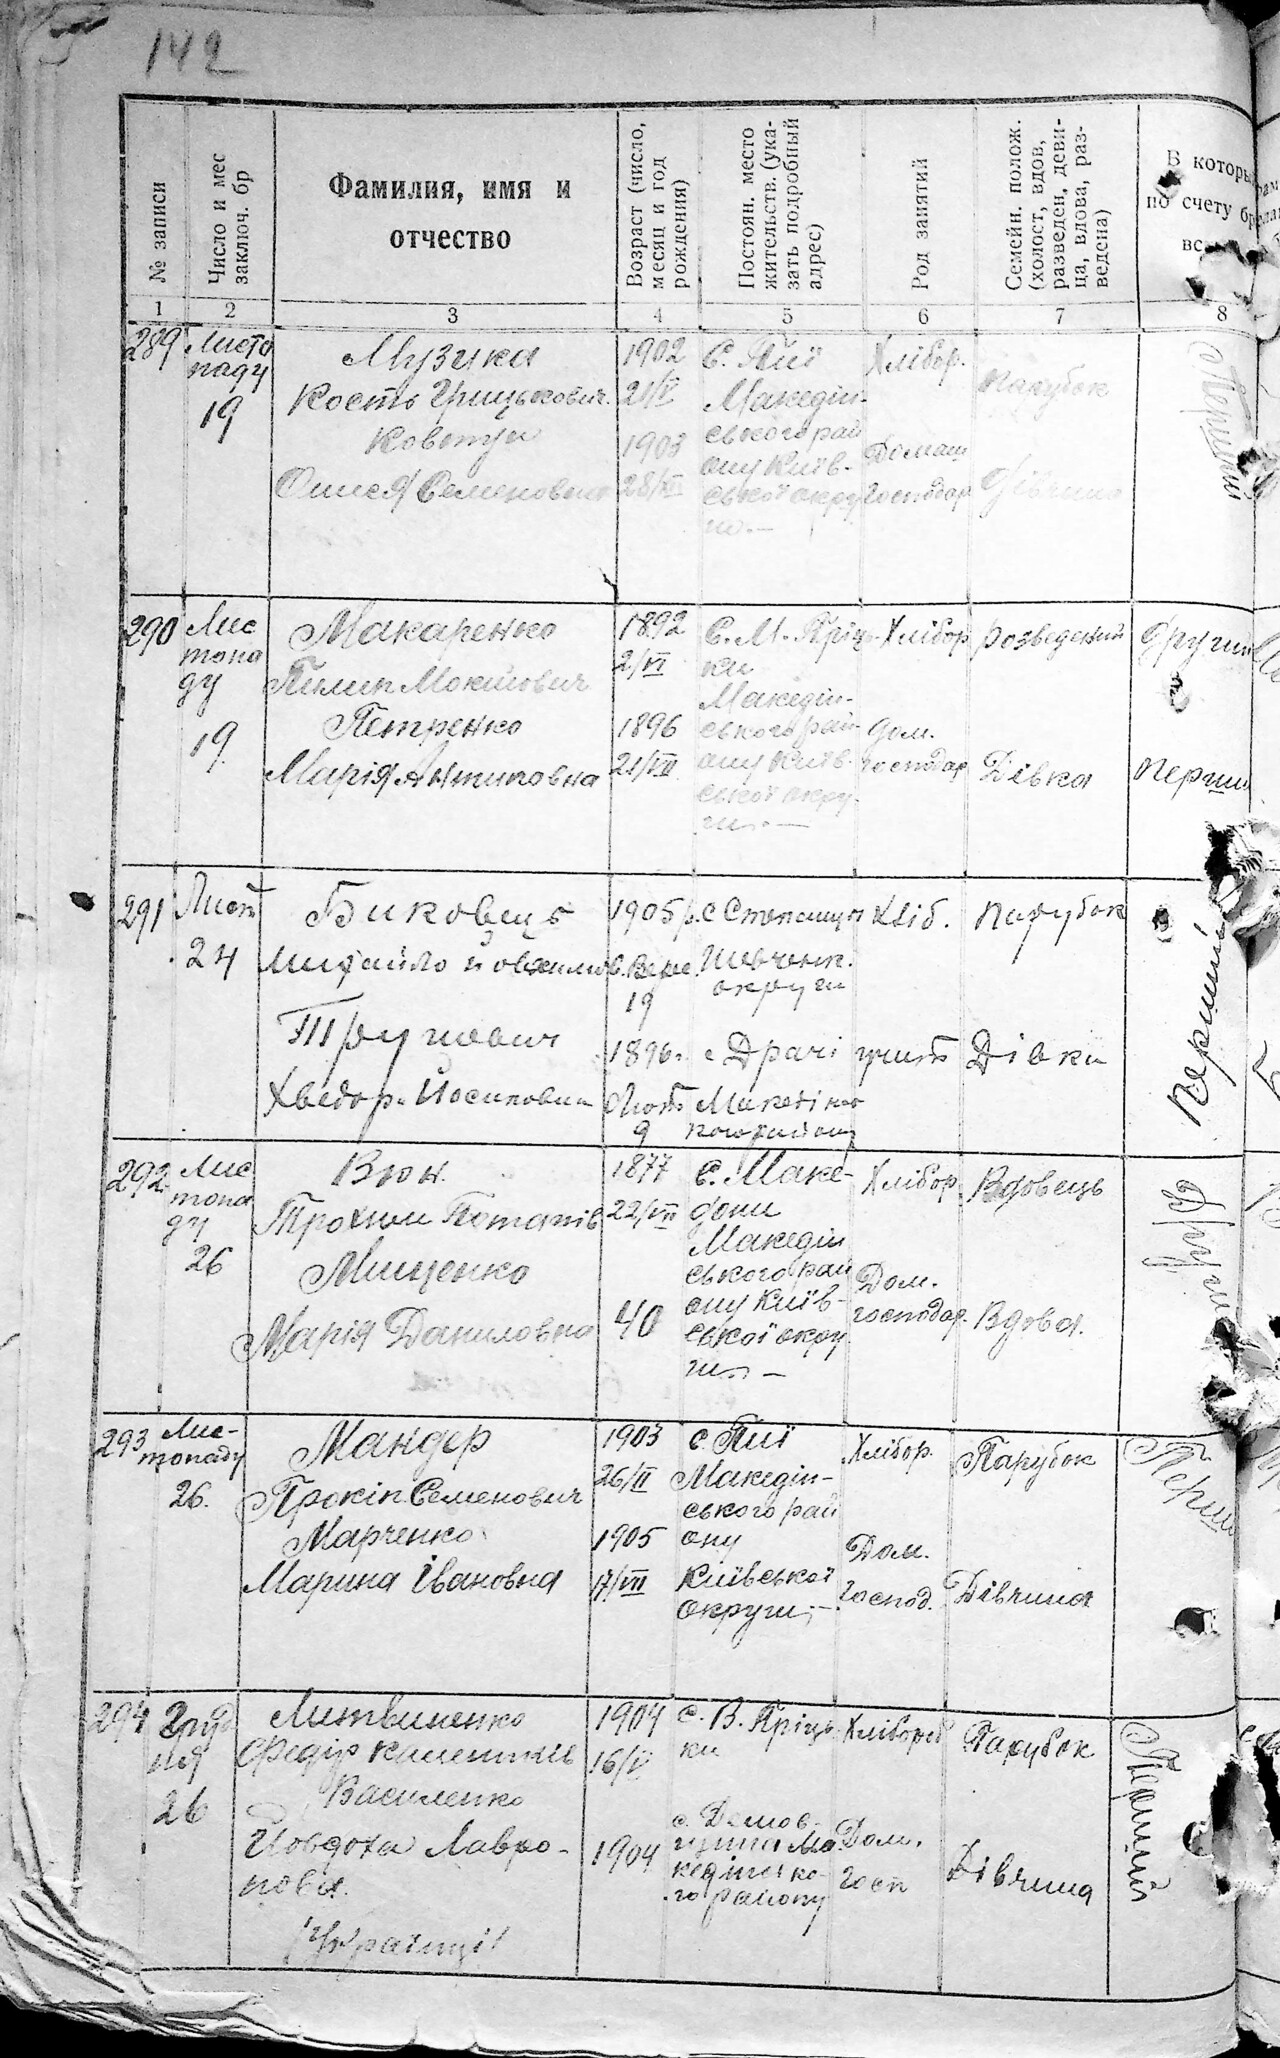 142
№ записи
Число и мес
заключ. бр
Фамилия, имя и
отчество
Возраст (число,
месяц и год
рождения)
Постоян. место
жительств. (ука-
зать подробный
адрес)
Род занятий
Семейн. полож.
(холост, вдов,
разведен, деви-
ца, вдова, раз-
ведена)
В которы
по счету бр
вс
1 2 3 4 5 6 7 8
289
Листо
паду
19
Музика
Кость Грицькович
Ковтун
Семеновна
1902
21/V
1903
28/XII
С. Пиї
Македін-
ського рай
ону Київ-
ської окру
ги.—
Хлібор.
Домаш
господар
Парубок
Дівчина
Перший
290
Лис
топа
ду
19
Макаренко
Пилип Мокійович
Петренко
Марія Антиповна
1892
2/VI
1896
21/VII
С. М. Пріць-
ки
Македін-
ського рай
ону Київ-
ської окру-
ги.—
Хлібор
Дом.
господар
розведений
Дівка
Другий
Перший
291
Лист
24
Биковець
Михайло Йовхимов
Хведор. Йосиповна
1905 р.
Верес.
19
1896.
Лют
9
с Степанци
Шевченк.
округи
с Драчі
Македінс
кого району
Хліб.
Парубок
Дівка
Перший
292
Лис
топа
ду
26
Вюн.
Трохим Потапів
Мищенко
Марія Даниловна
1877
22/VII
40
С. Маке-
дони
Македін
ського рай
ону Київ-
ської окру
ги. —
Хлібор.
Дом.
господар.
Вдовець
Вдова.
Другий
293
Лис-
топаду
26.
Мандер
Прокіп Семенович
Марченко
Марина Івановна
1903
26/II
1905
17/VII
с. Пиї
Македін-
ського рай
ону
Київської
Округи.—
Хлібор.
Дом.
Господ.
Парубок
Дівчина
Перш
294
Груд
ня
26
Литвиненко
Федір Калеників
Василенко
Йовдоха Лавро-
нова.
/Українці/
1904
16/V
1904
с. В. Пріць-
ки
с. Демов-
щина Ма
кедінсько-
го району
Хлібороб
Дом.
Госп
Парубок
Дівчина
Перший